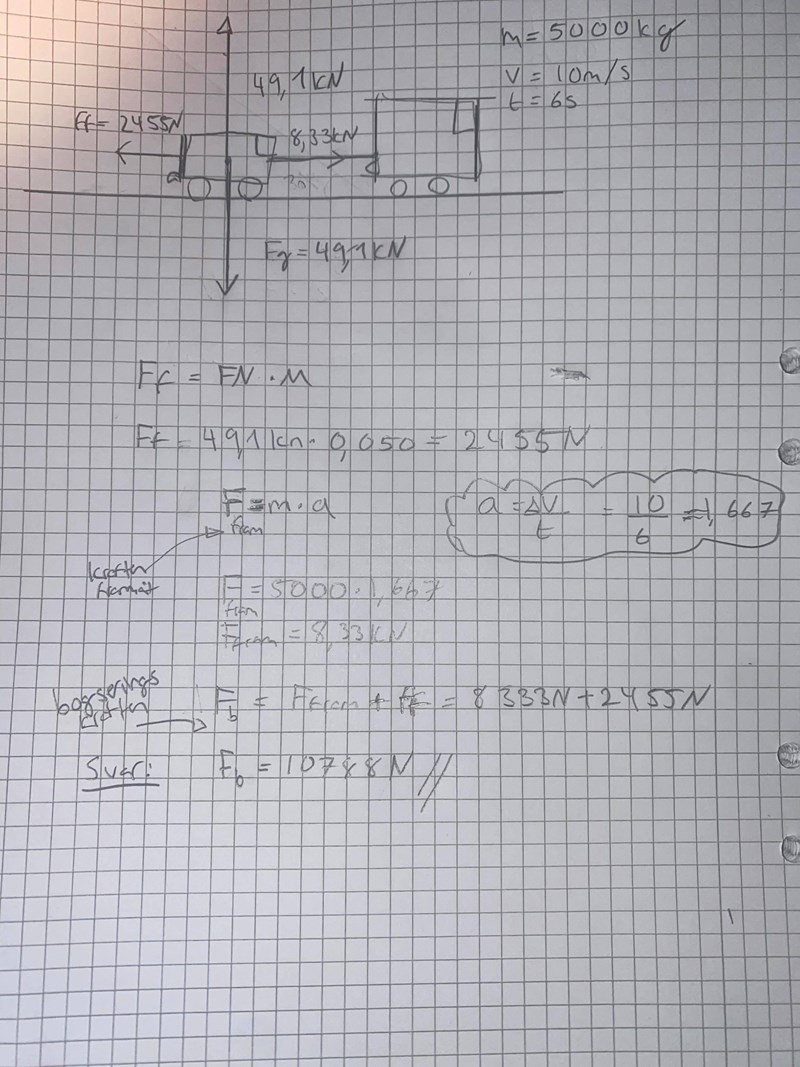 m = 5000kg
49,1kN
V = 10m/s
t = 6s
Ff = 2455N
8,33kN
Fg = 49,1kN
Ff = FN · M
Ff = 49,1kn · 0,050 = 2455N
F = m · a
fram
a = ΔV/t = 10/6 = 1,667
kraften
framåt
F = 5000 · 1,667
fram
Ffram = 8,33KN
bogserings
kraften
Fb = Ffram + Ff = 8333N + 2455N
Svar: Fb = 10788N //